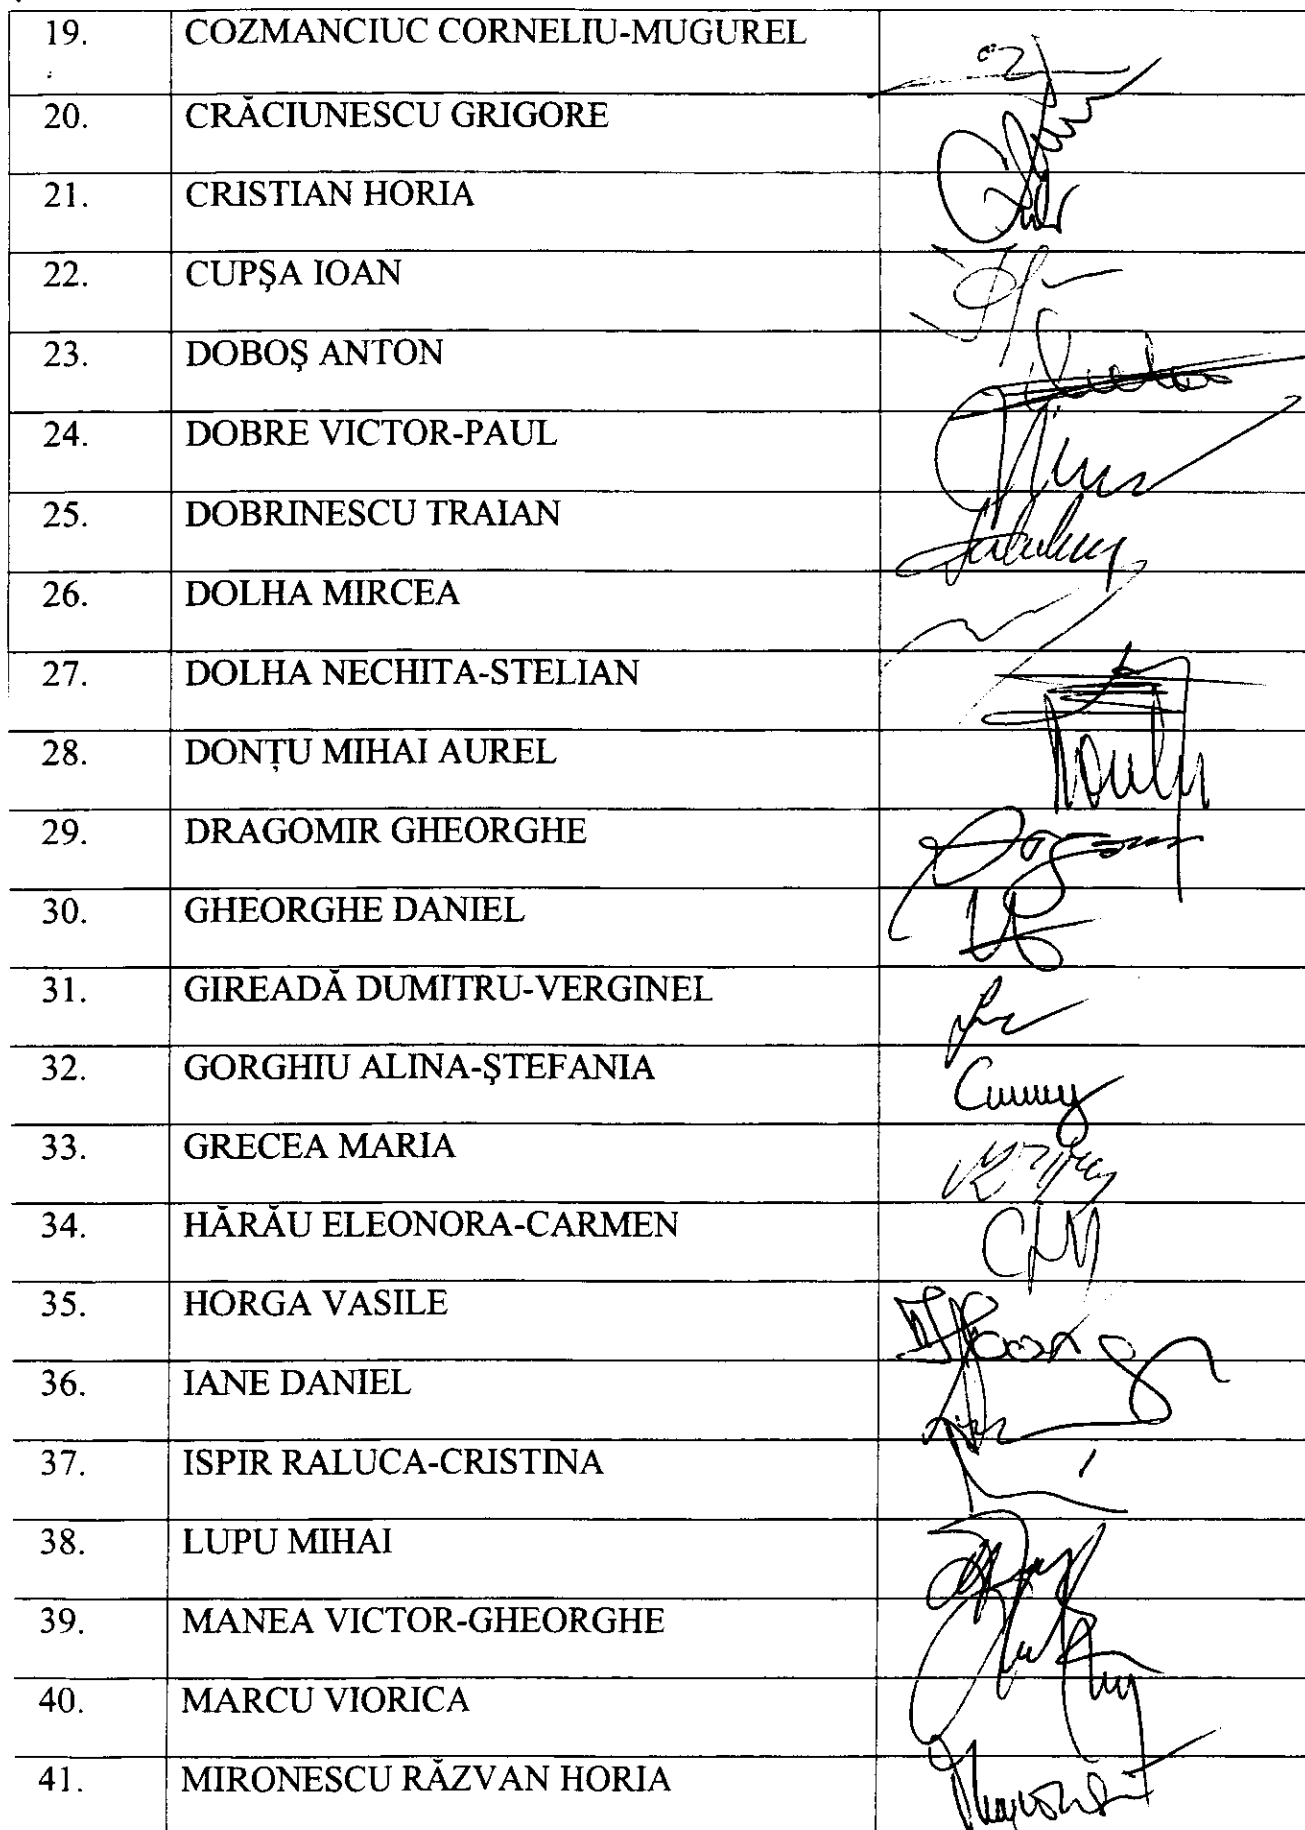 19. COZMANCIUC CORNELIU-MUGUREL
20. CRĂCIUNESCU GRIGORE
21. CRISTIAN HORIA
22. CUPŞA IOAN
23. DOBOŞ ANTON
24. DOBRE VICTOR-PAUL
25. DOBRINESCU TRAIAN
26. DOLHA MIRCEA
27. DOLHA NECHITA-STELIAN
28. DONŢU MIHAI AUREL
29. DRAGOMIR GHEORGHE
30. GHEORGHE DANIEL
31. GIREADĂ DUMITRU-VERGINEL
32. GORGHIU ALINA-ŞTEFANIA
33. GRECEA MARIA
34. HĂRĂU ELEONORA-CARMEN
35. HORGA VASILE
36. IANE DANIEL
37. ISPIR RALUCA-CRISTINA
38. LUPU MIHAI
39. MANEA VICTOR-GHEORGHE
40. MARCU VIORICA
41. MIRONESCU RĂZVAN HORIA